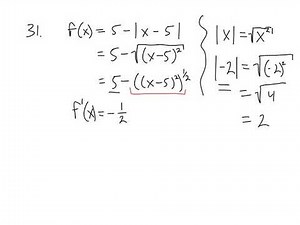 31. f(x) = 5 - |x - 5|
= 5 - √((x-5)²)
= 5 - ((x-5)²)^½
f'(x) = - 1/2
|x| = √x²
|-2| = √(-2)²
= √4
= 2